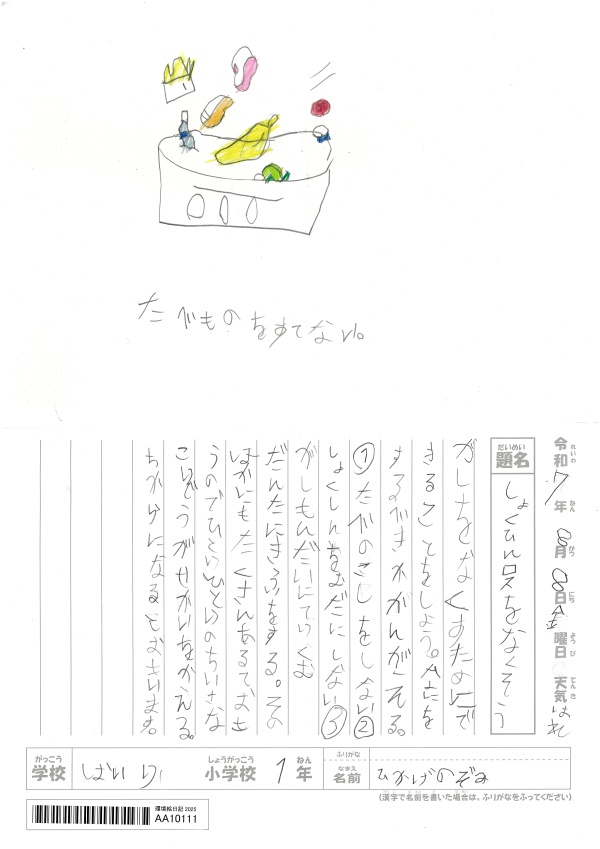 たべものをすてない。
令和7年8月8日金曜日 天気はれ
れいわ ねん がつ にち ようび てんき
だいめい
題名 しょくひんロスをなくそう
がしをなくすためにで
きることをしよう。なにを
するべきかかんがえる。
①たべのこしをしない②
しょくひんをむだにしない③
がしもんだいにていくむ
だんたいにきふをする。その
ほかにもたくさんあるとおも
うのでひとりひとりのちいさな
こうどうがせかいをかえる。
になるとおもいます。
がっこう しょうがっこう ねん ふりがな
学校 小学校 1年 なまえ 名前 ひかげのぞみ
(漢字で名前を書いた場合は、ふりがなをふってください)
環境絵日記 2025
AA10111